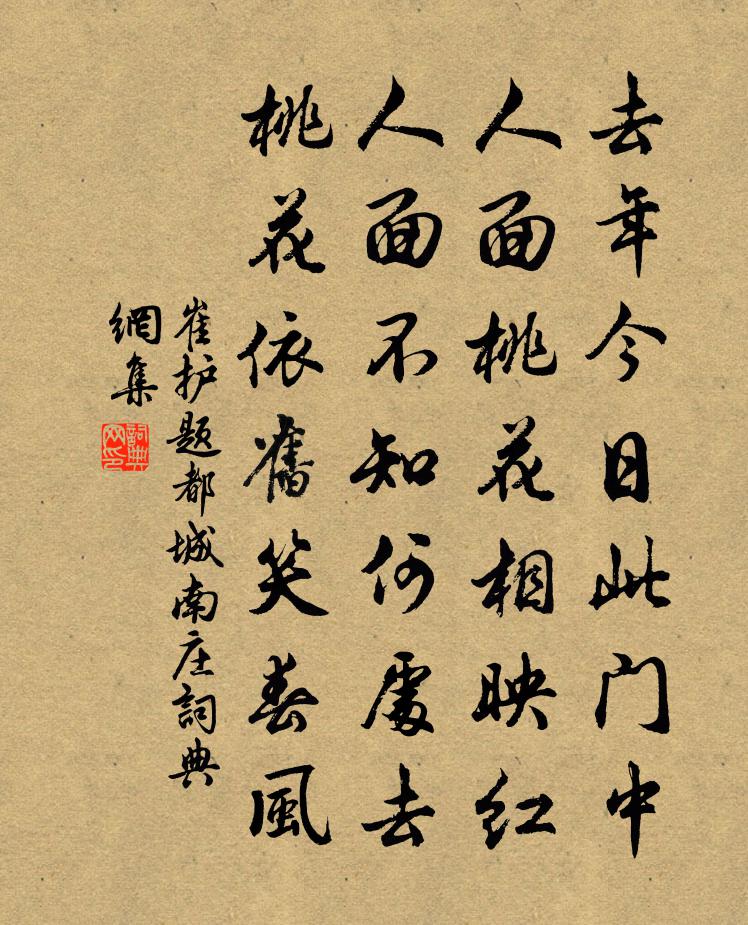 去年今日此门中
人面桃花相映红
人面不知何處去
桃花依舊笑春風
崔护题都城南庄詞典
網集
詞典网印